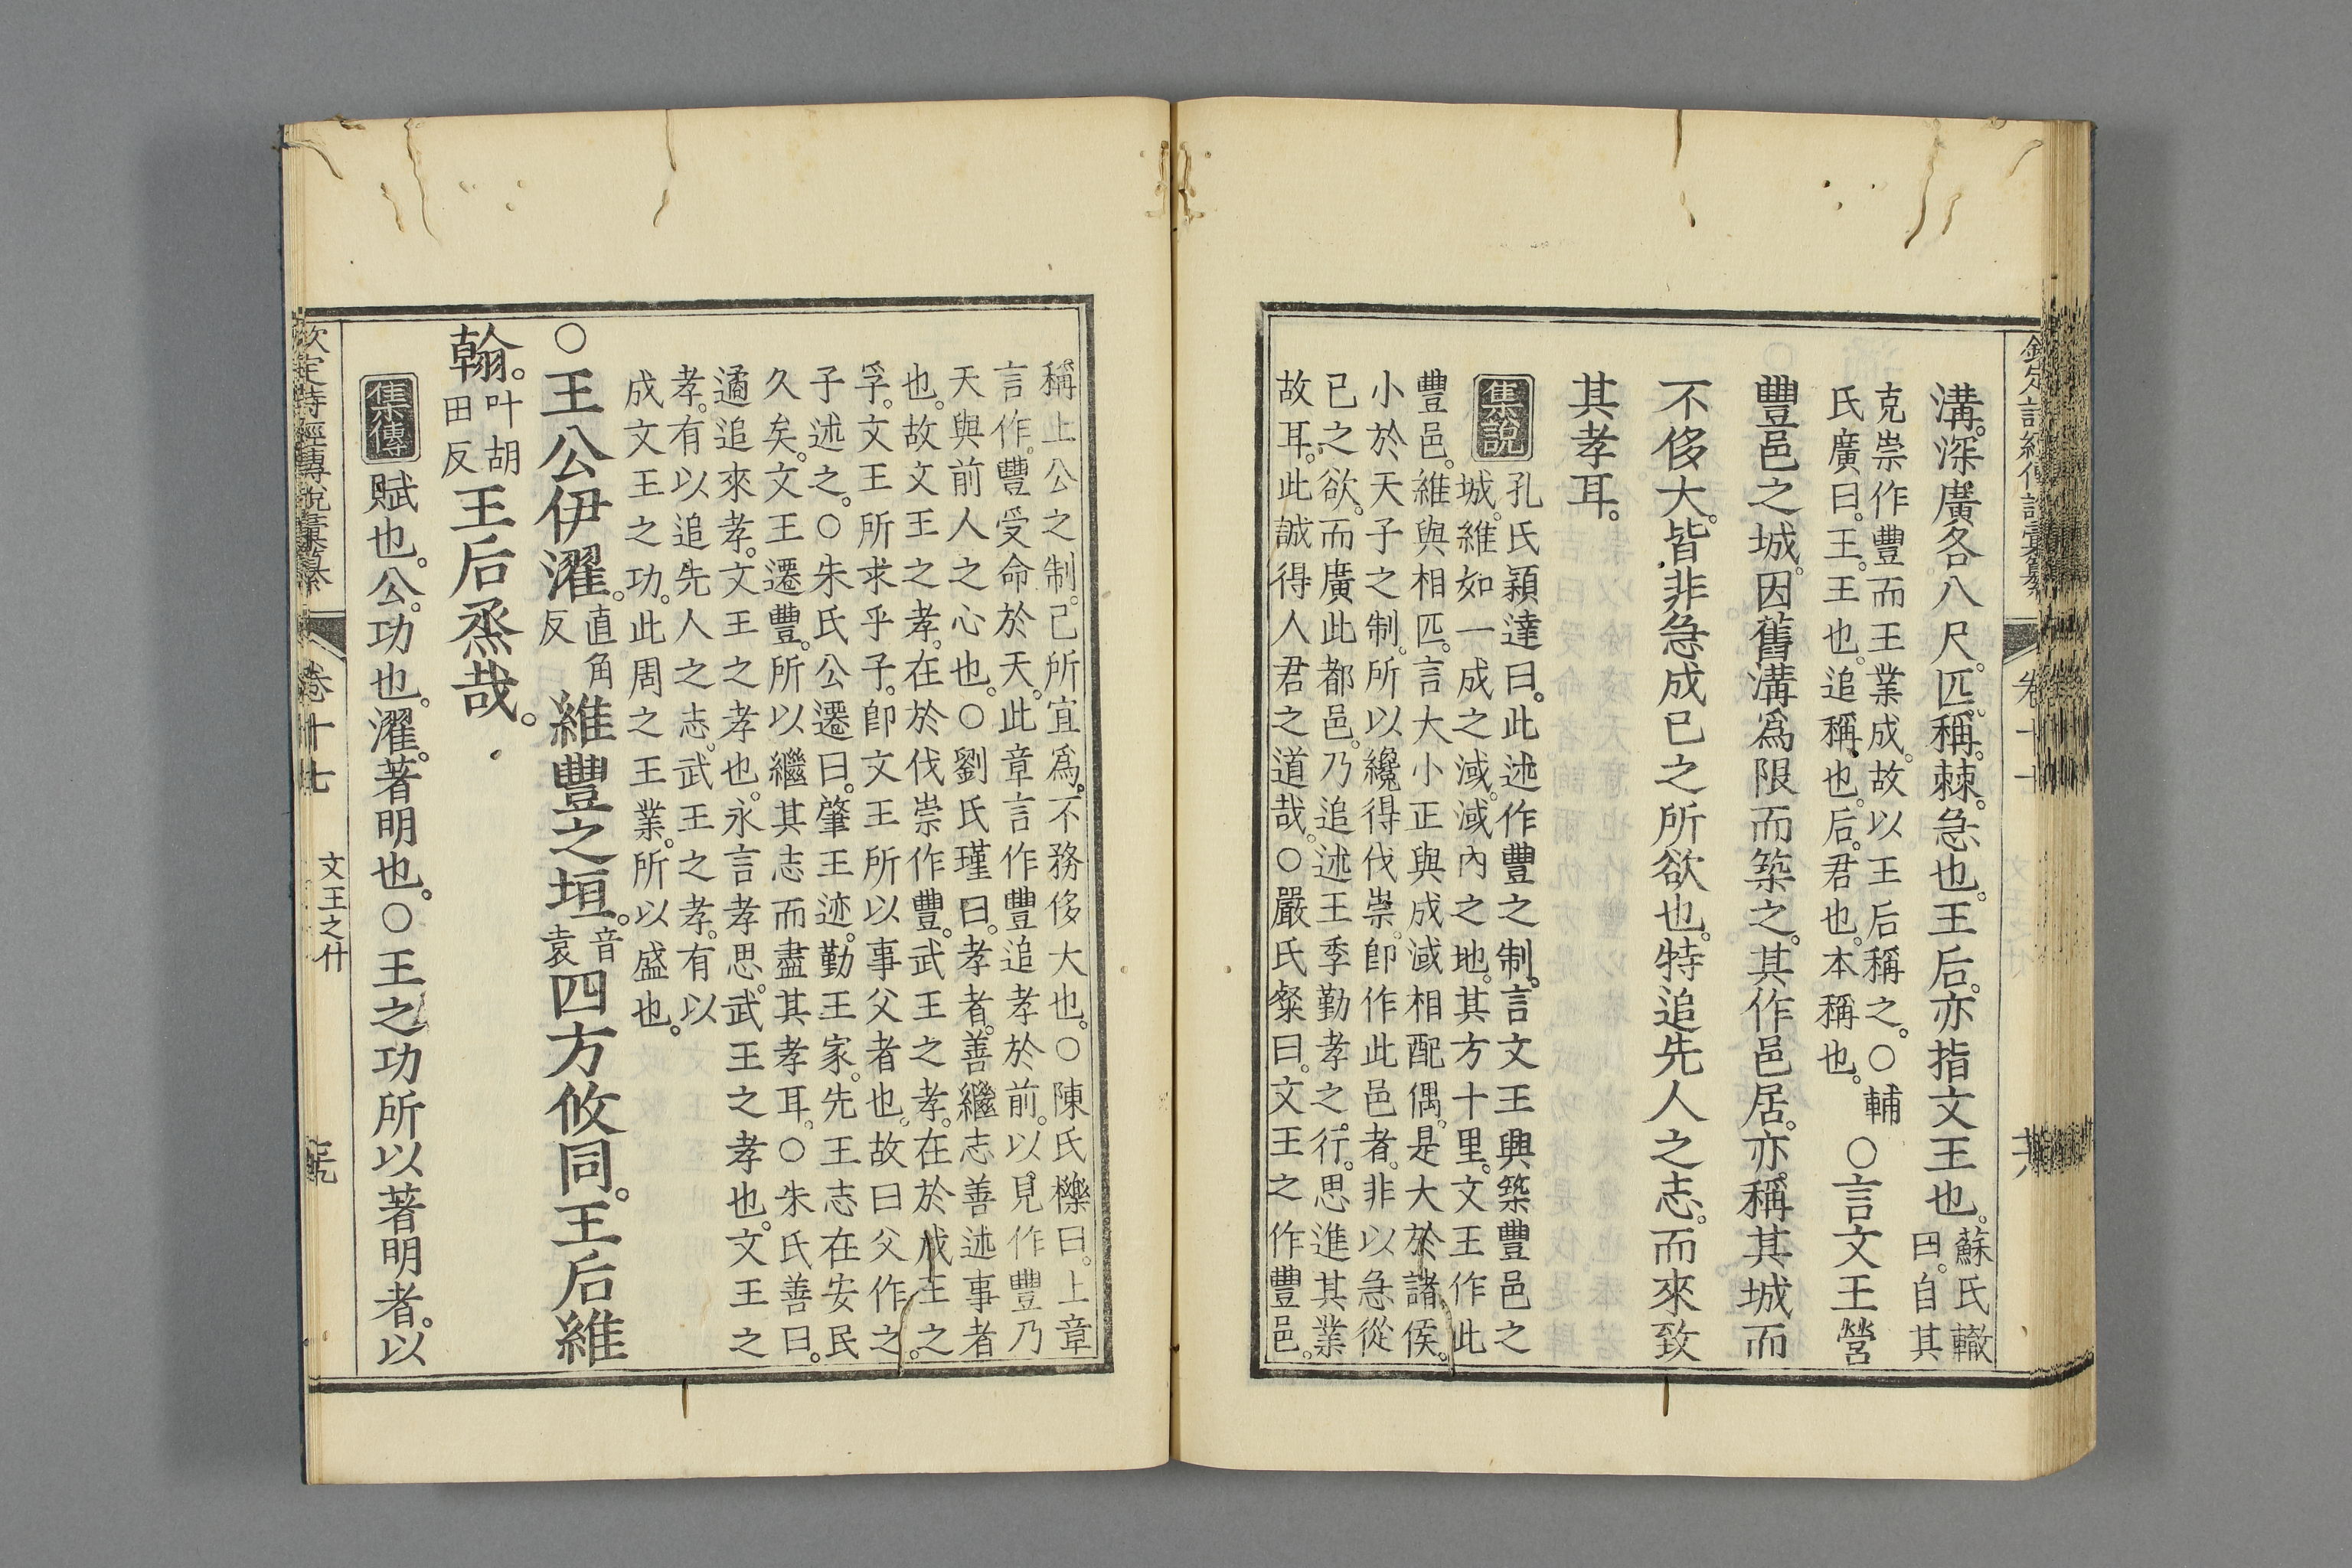 溝。深廣各八尺。匹。稱。棘。急也。王后。亦指文王也。蘇氏轍曰。自其
克崇作豐而王業成。故以王后稱之。○輔氏廣曰。王。王也。追稱也。后。君也。本稱也。○言文王營
豐邑之城。因舊溝爲限而築之。其作邑居。亦稱其城而
不侈大。皆非急成已之所欲也。特追先人之志。而來致
其孝耳。
集說
孔氏穎達曰。此述作豐之制。言文王興築豐邑之
城。維如一成之淢。淢內之地。其方十里。文王作此
豐邑。維與相匹。言大小正與成淢相配偶。是大於諸侯。
小於天子之制。所以纔得伐崇。卽作此邑者。非以急從
已之欲。而廣此都邑。乃追述王季勤孝之行。思進其業
故耳。此誠得人君之道哉。○嚴氏粲曰。文王之作豐邑。
稱上公之制。己所宜爲。不務侈大也。○陳氏櫟曰。上章
言作豐受命於天。此章言作豐追孝於前。以見作豐乃
天與前人之心也。○劉氏瑾曰。孝者。善繼志善述事者
也。故文王之孝。在於伐崇作豐。武王之孝。在於成王之
孚。文王所求乎子。卽文王所以事父者也。故曰父作之。
子述之。○朱氏公遷曰。肇王迹。勤王家。先王志在安民
久矣。文王遷豐。所以繼其志而盡其孝耳。○朱氏善曰。
遹追來孝。文王之孝也。永言孝思。武王之孝也。文王之
孝。有以追先人之志。武王之孝。有以
成文王之功。此周之王業。所以盛也。
○王公伊濯。直角反維豐之垣。音袁四方攸同。王后維
翰。叶胡田反王后烝哉。
集傳
賦也。公。功也。濯。著明也。○王之功所以著明者。以
欽定詩經傳說彙纂
卷十七
文王之什